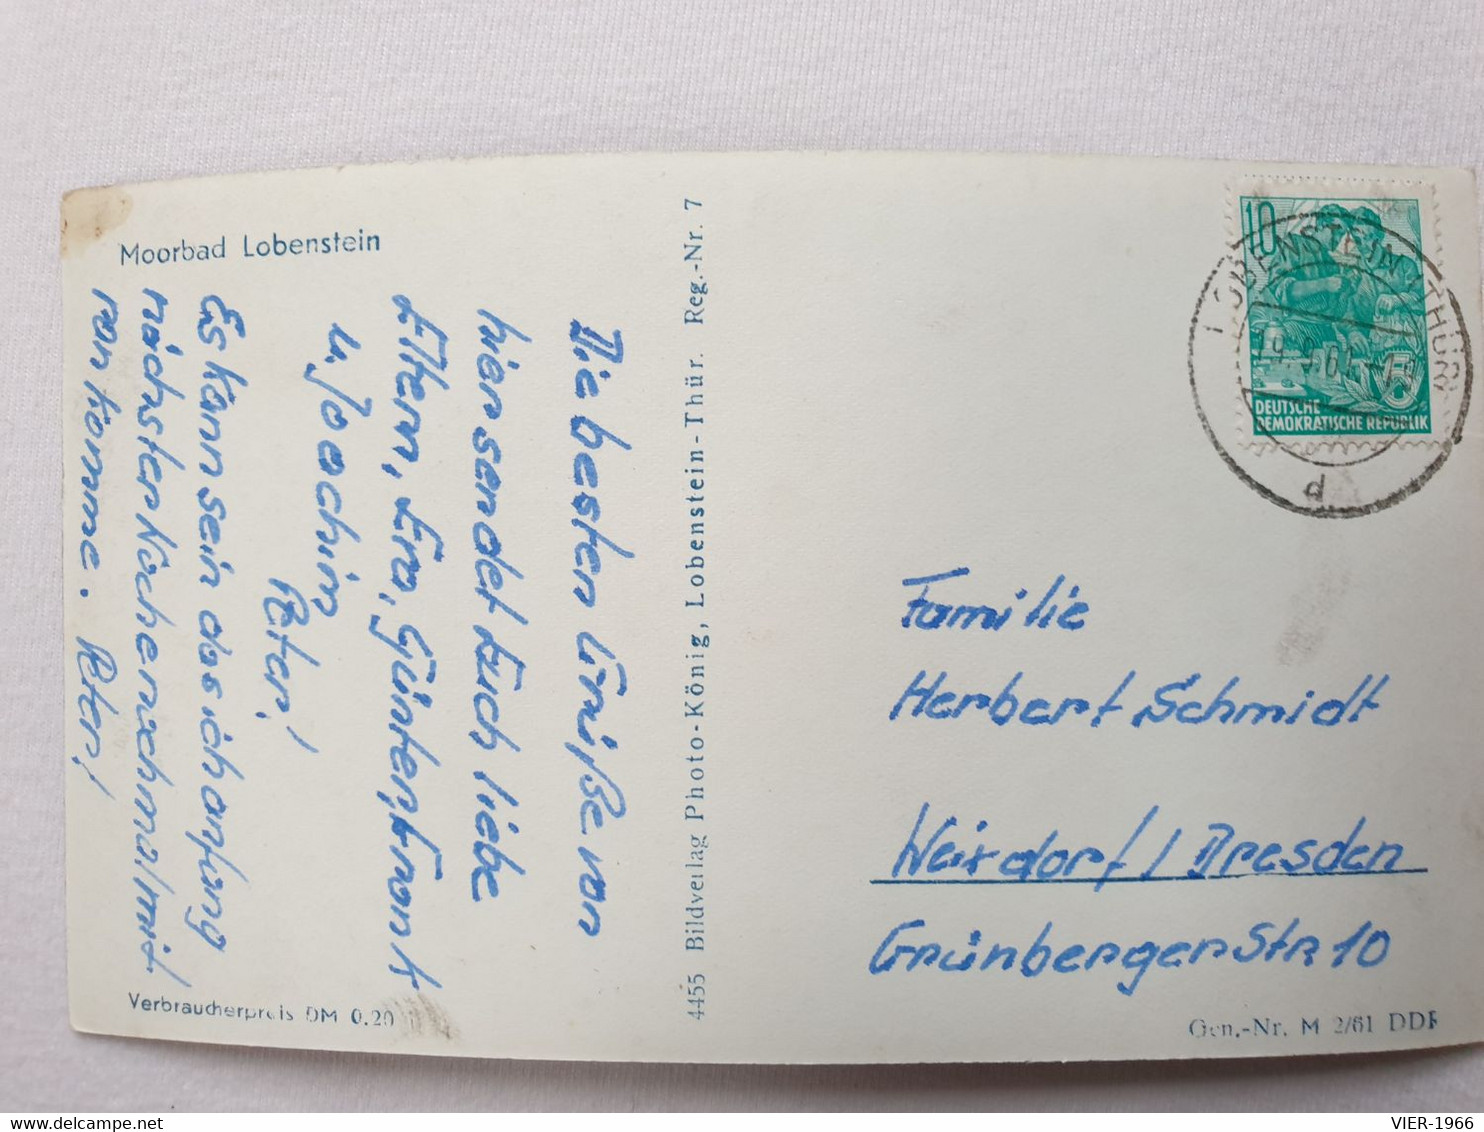 Moorbad Lobenstein
Die besten Grüße von
hier sendet Euch liebe
Eltern, Eva, Günter, Frank
u. Joachim
Peter!
Es kann sein das ich anfang
nächster Woche nochmal mit
ran komme. Peter!
Verbraucherpreis DM 0.20
4455 Bildverlag Photo-König, Lobenstein-Thür. Reg.-Nr. 7
10
DEUTSCHE
DEMOKRATISCHE REPUBLIK
LOBENSTEIN (THÜR)
d
Familie
Herbert Schmidt
Weixdorf / Dresden
Grünberger Str 10
Gen.-Nr. M 2/61 DDR
VIER-1966